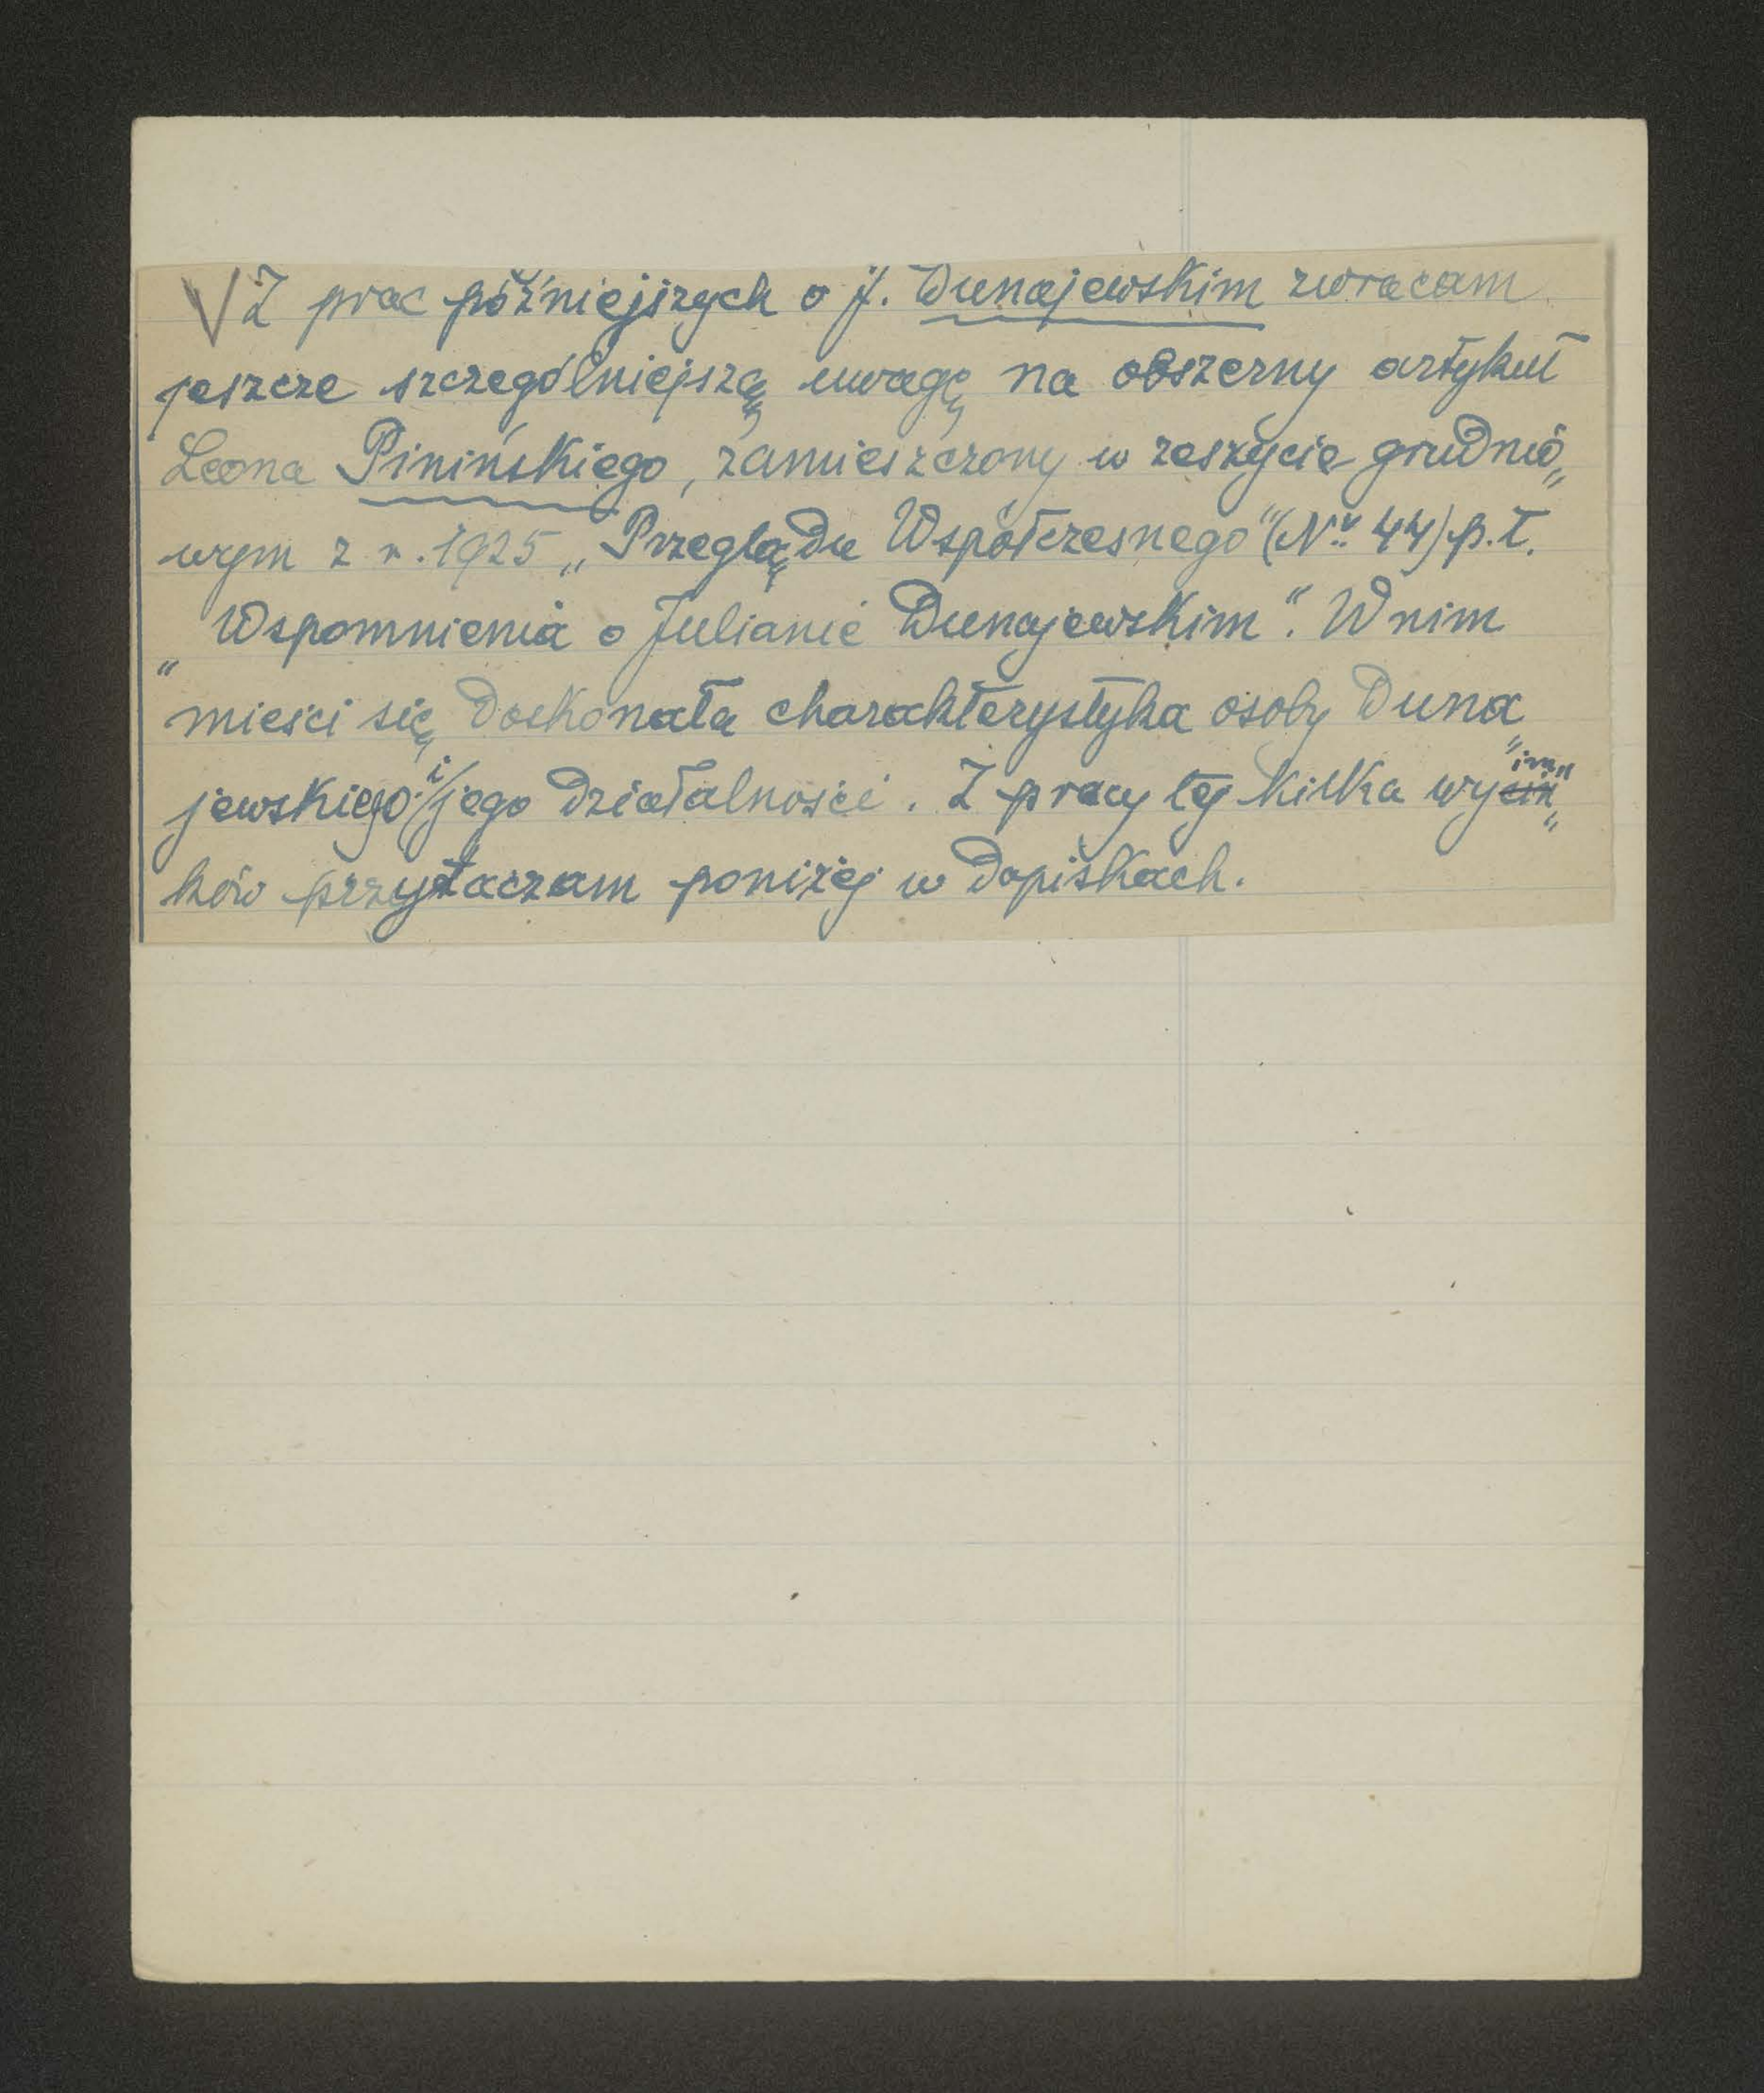 V Z prac późniejszych o J. Dunajewskim zwracam
jeszcze szczególniejszą uwagę na obszerny artykuł
Leona Pinińskiego, zamieszczony w zeszycie grudnio„
wym z r. 1925 „Przeglądu Współczesnego" (Nr. 44) p.t.
„Wspomnienia o Julianie Dunajewskim". W nim
mieści się doskonała charakterystyka osoby Duna„
jewskiego i jego działalności. Z pracy tej kilka wyim„
ków przytaczam poniżej w dopiskach.